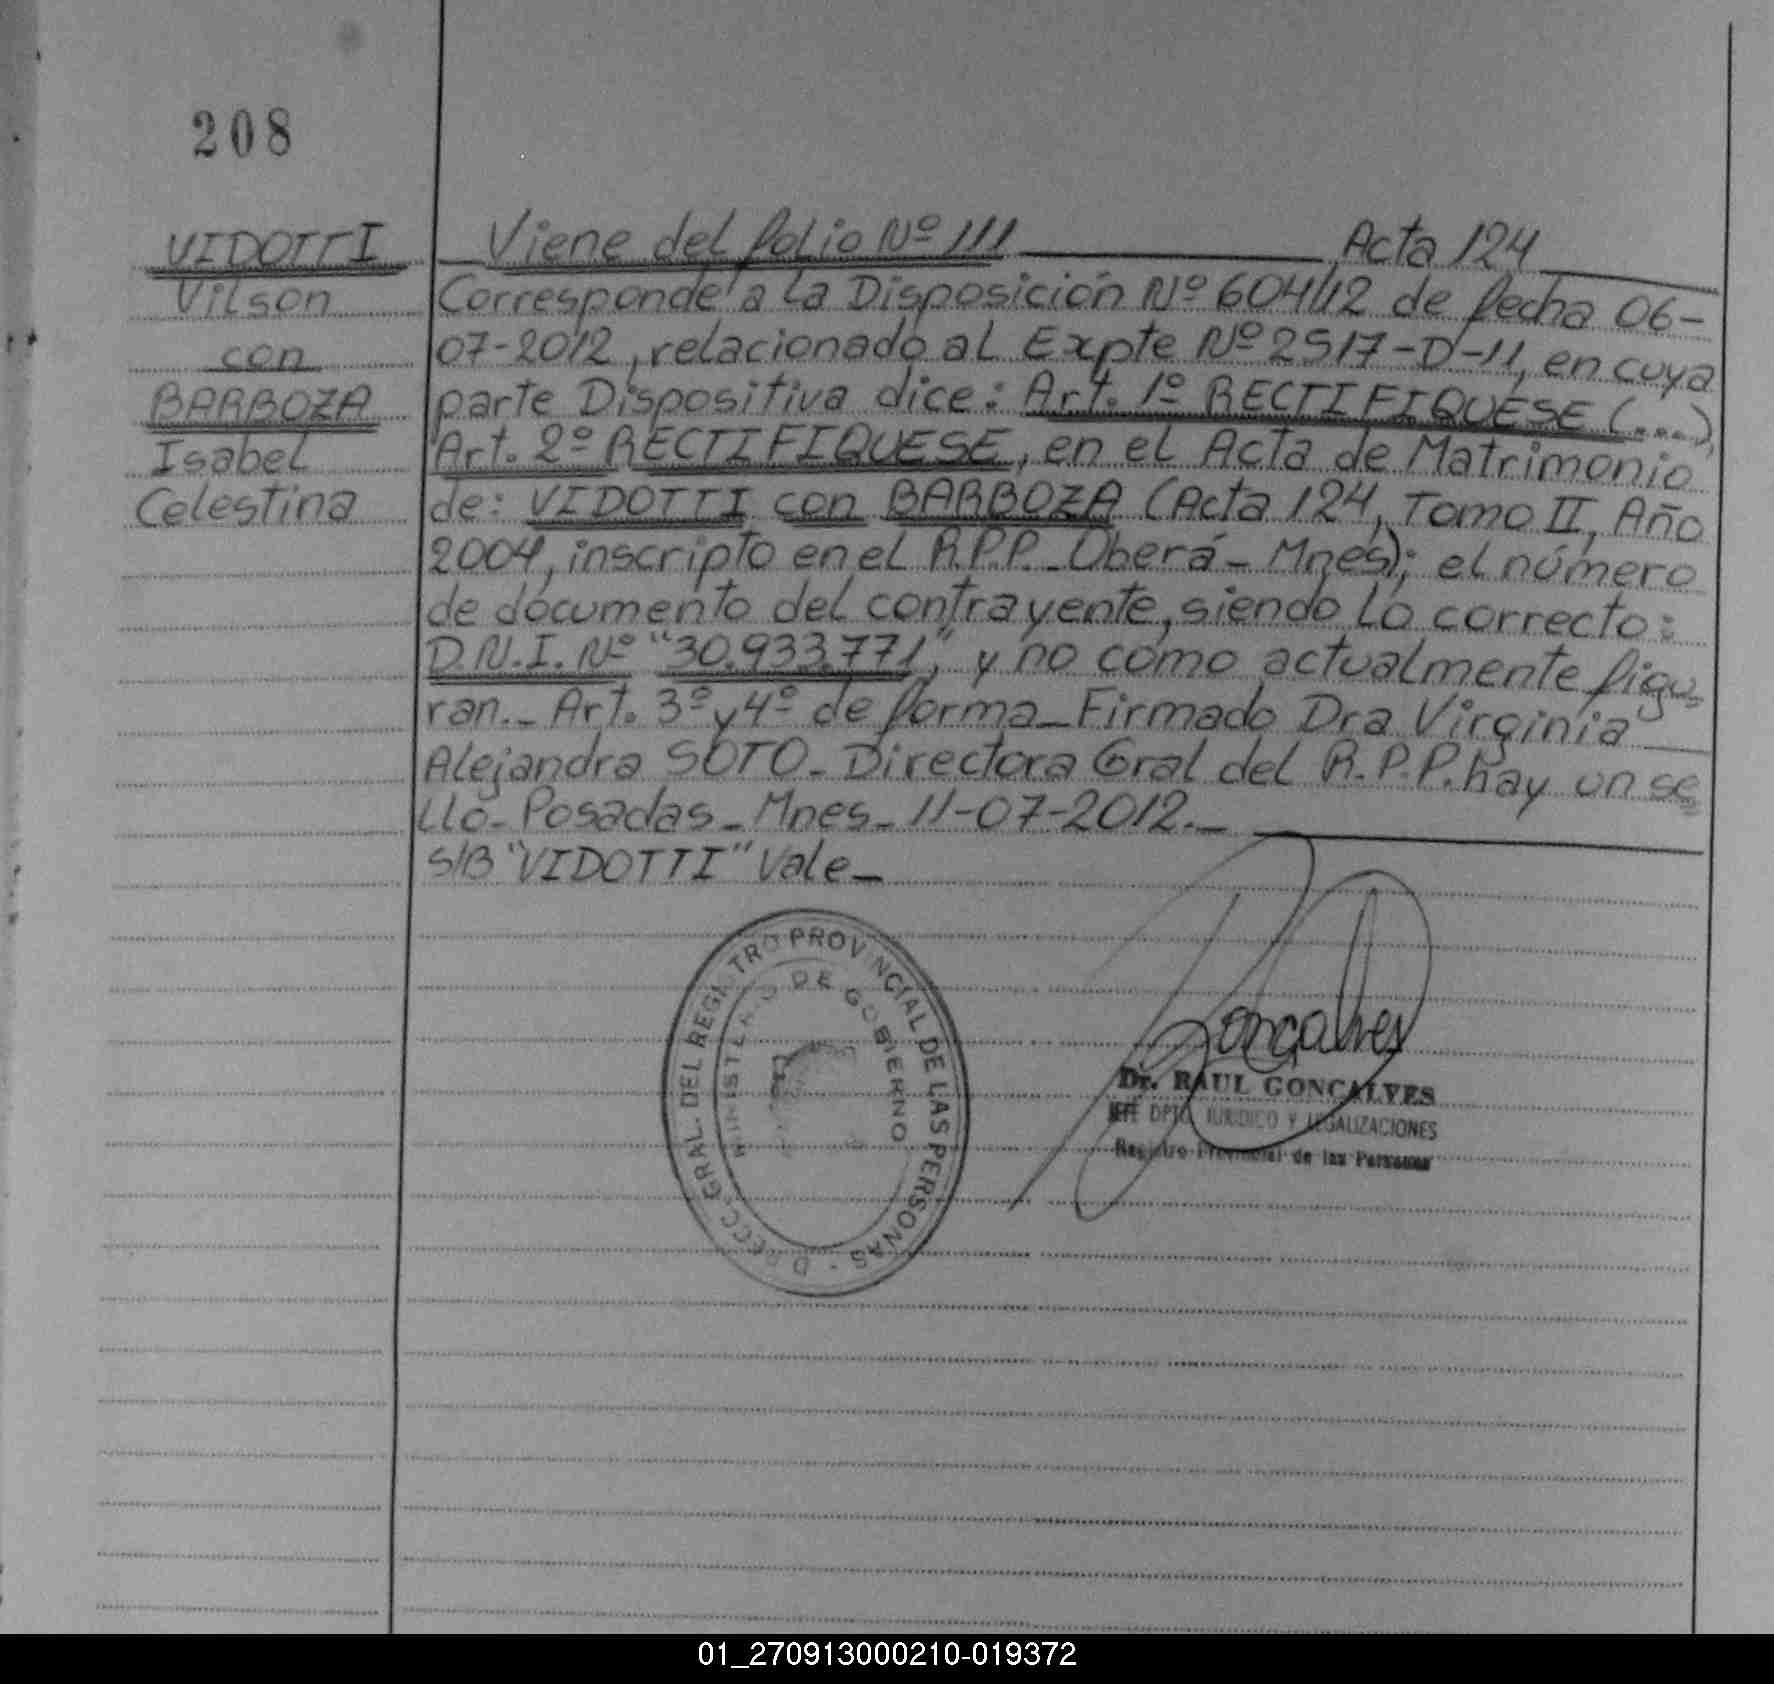 208
VIDOTTI
Vilson
con
BARBOZA
Isabel
Celestina
Viene del folio Nº 111 Acta 124
Corresponde a la Disposición Nº 604/12 de fecha 06-
07-2012, relacionado al Expte Nº 2517-D-11, en cuya
parte Dispositiva dice: Art. 1º RECTIFIQUESE (....)
Art. 2º RECTIFIQUESE, en el Acta de Matrimonio
de: VIDOTTI con BARBOZA (Acta 124, Tomo II, Año
2004, inscripto en el R.P.P. - Oberá - Mnes); el número
de documento del contrayente, siendo lo correcto:
D.N.I. Nº "30.933.771," y no como actualmente figu=
ran._ Art. 3º y 4º de forma_Firmado Dra Virginia
Alejandra SOTO_ Directora Gral del R.P.P. hay un se
llo_ Posadas_ Mnes_ 11-07-2012._
S/B "VIDOTTI" Vale_
DIRECC. GRAL. DEL REGISTRO PROVINCIAL DE LAS PERSONAS -
MINISTERIO DE GOBIERNO
Gonçalves
Dr. RAUL GONCALVES
JEFE DPTO. JURIDICO Y LEGALIZACIONES
Registro Provincial de las Personas
01_270913000210-019372